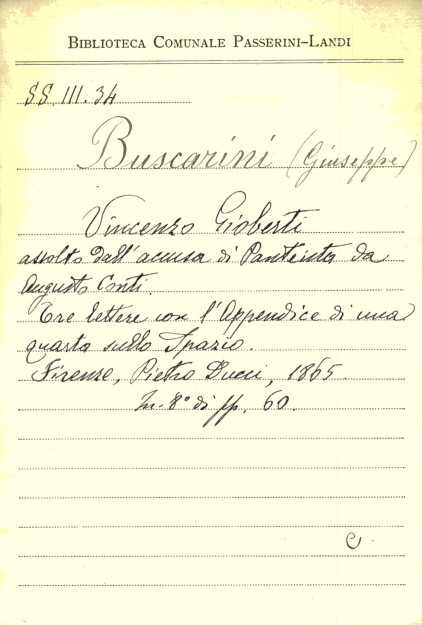 BIBLIOTECA COMUNALE PASSERINI-LANDI
SS. III. 34
Buscarini (Giuseppe)
Vincenzo Gioberti
assolto dall'accusa di Panteista da
Augusto Conti.
Tre lettere con l'Appendice di una
quarta sullo Spazio.
Firenze, Pietro Ducci, 1865.
In-8° di pp. 60.
C.